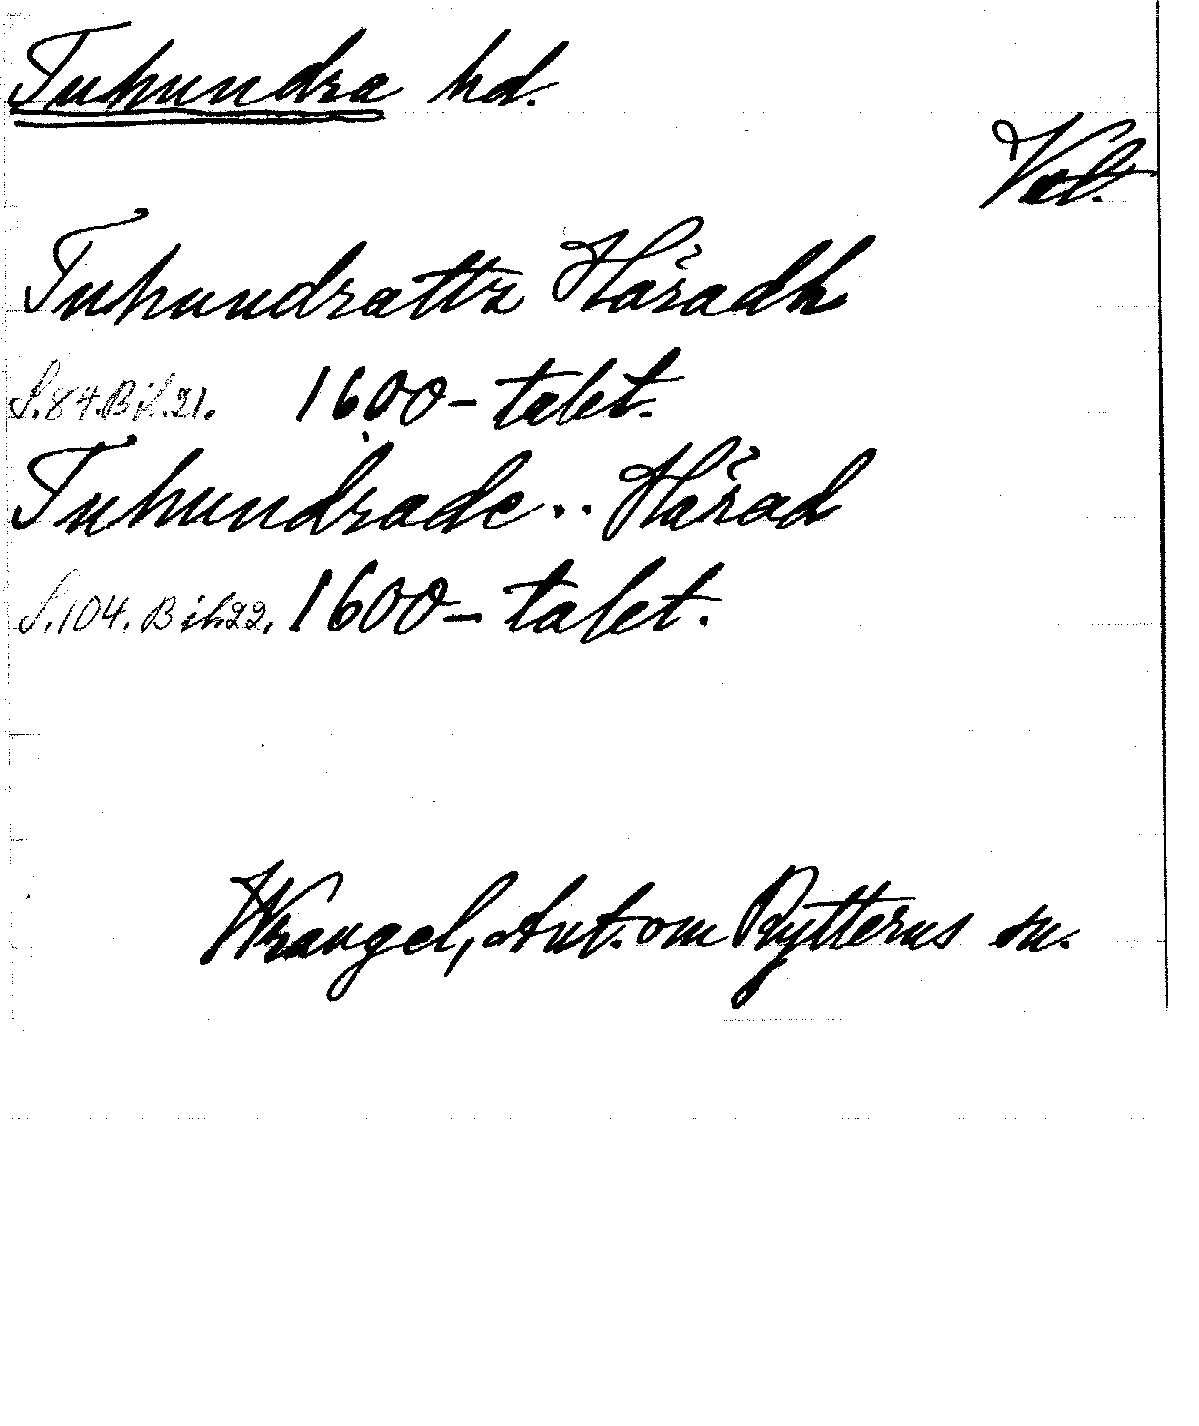 Tuhundra hd.
Vstl.
Tuhundratts Häradh
S.84 Bih.21. 1600-talet.
Tuhundrade.. Härad
S.104. Bih22. 1600-talet.
Wrangel, Ant. om Rytterns sn.